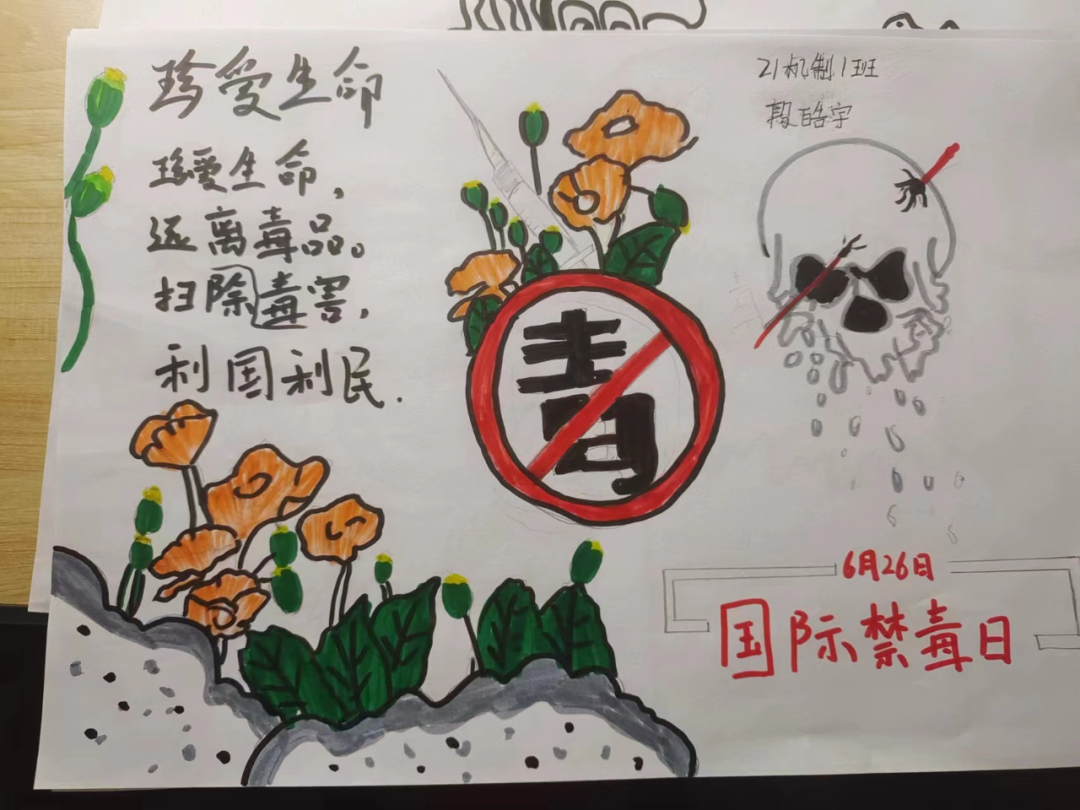 珍爱生命
珍爱生命，
远离毒品。
扫除毒害，
利国利民.
毒
21机制1班
段皓宇
6月26日
国际禁毒日